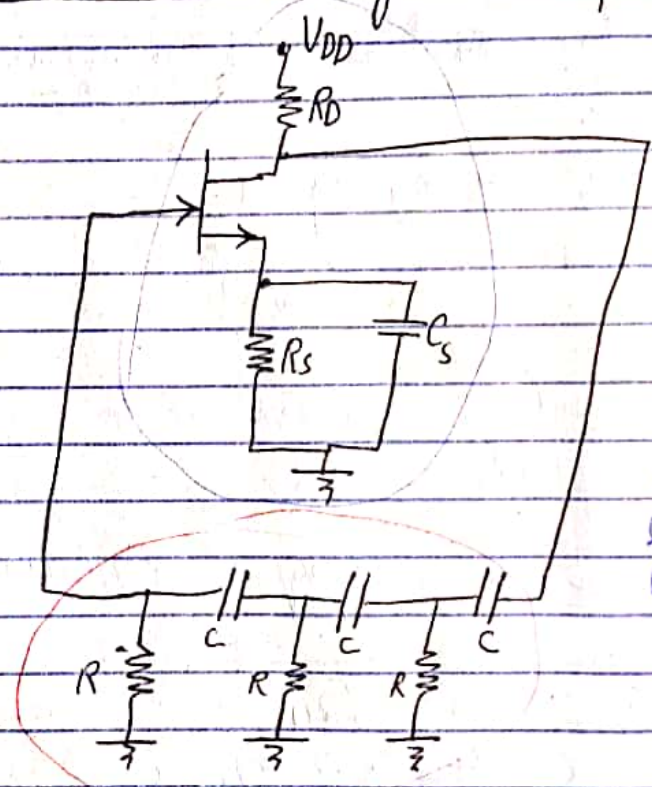 V_DD
R_D
R_S
C_S
C C C
R R R